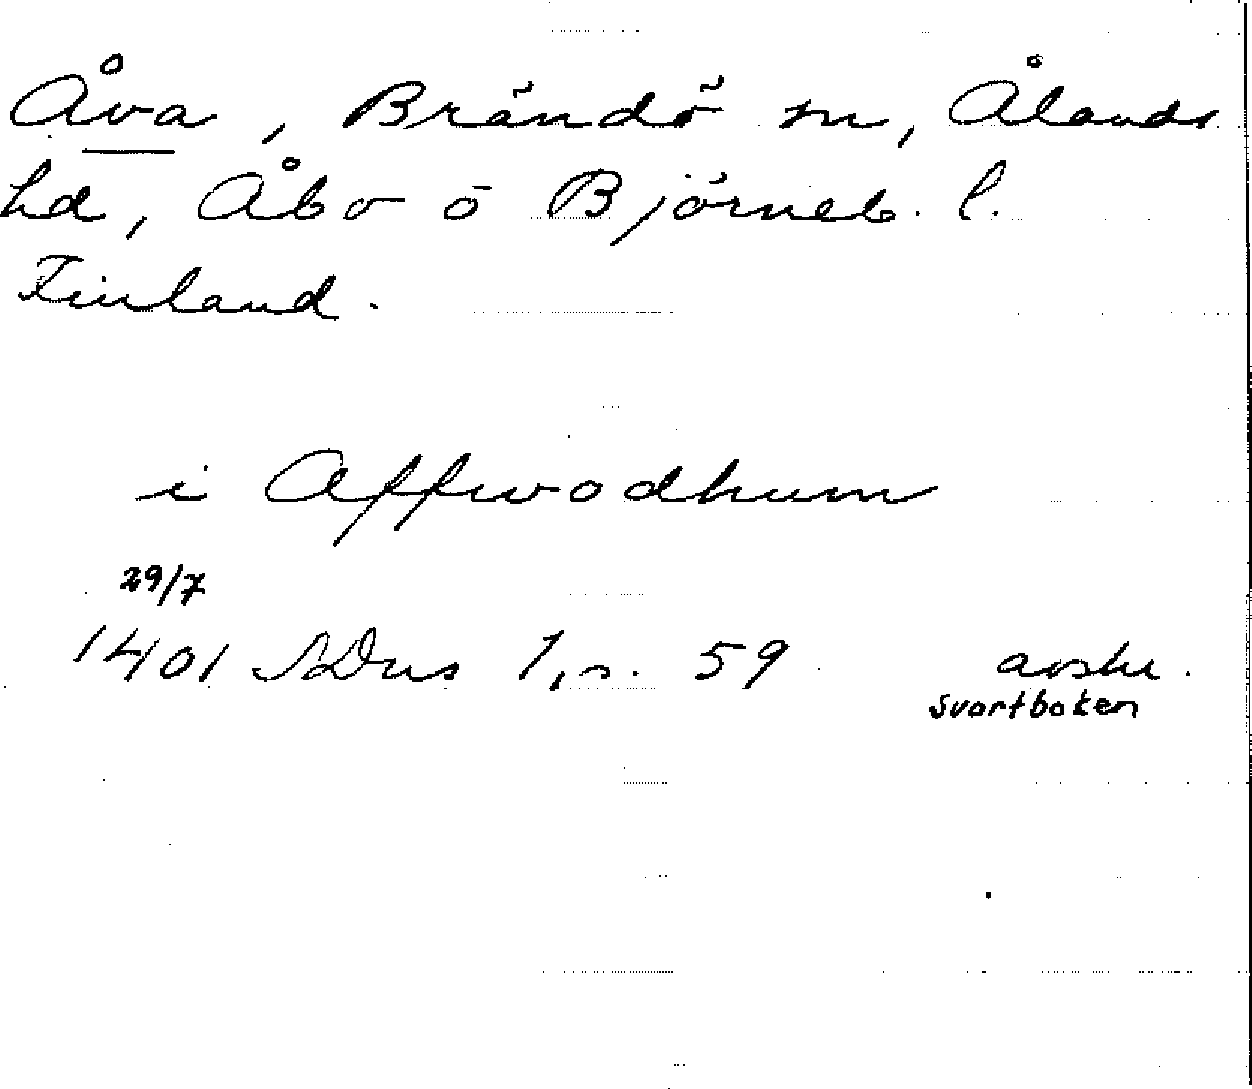 Åva, Brändö sn, Ålands
hd, Åbo o Björneb. l.
Finland.
i Affwodhum
29/7
1401 SDns 1, s. 59 avskr.
Svartboken